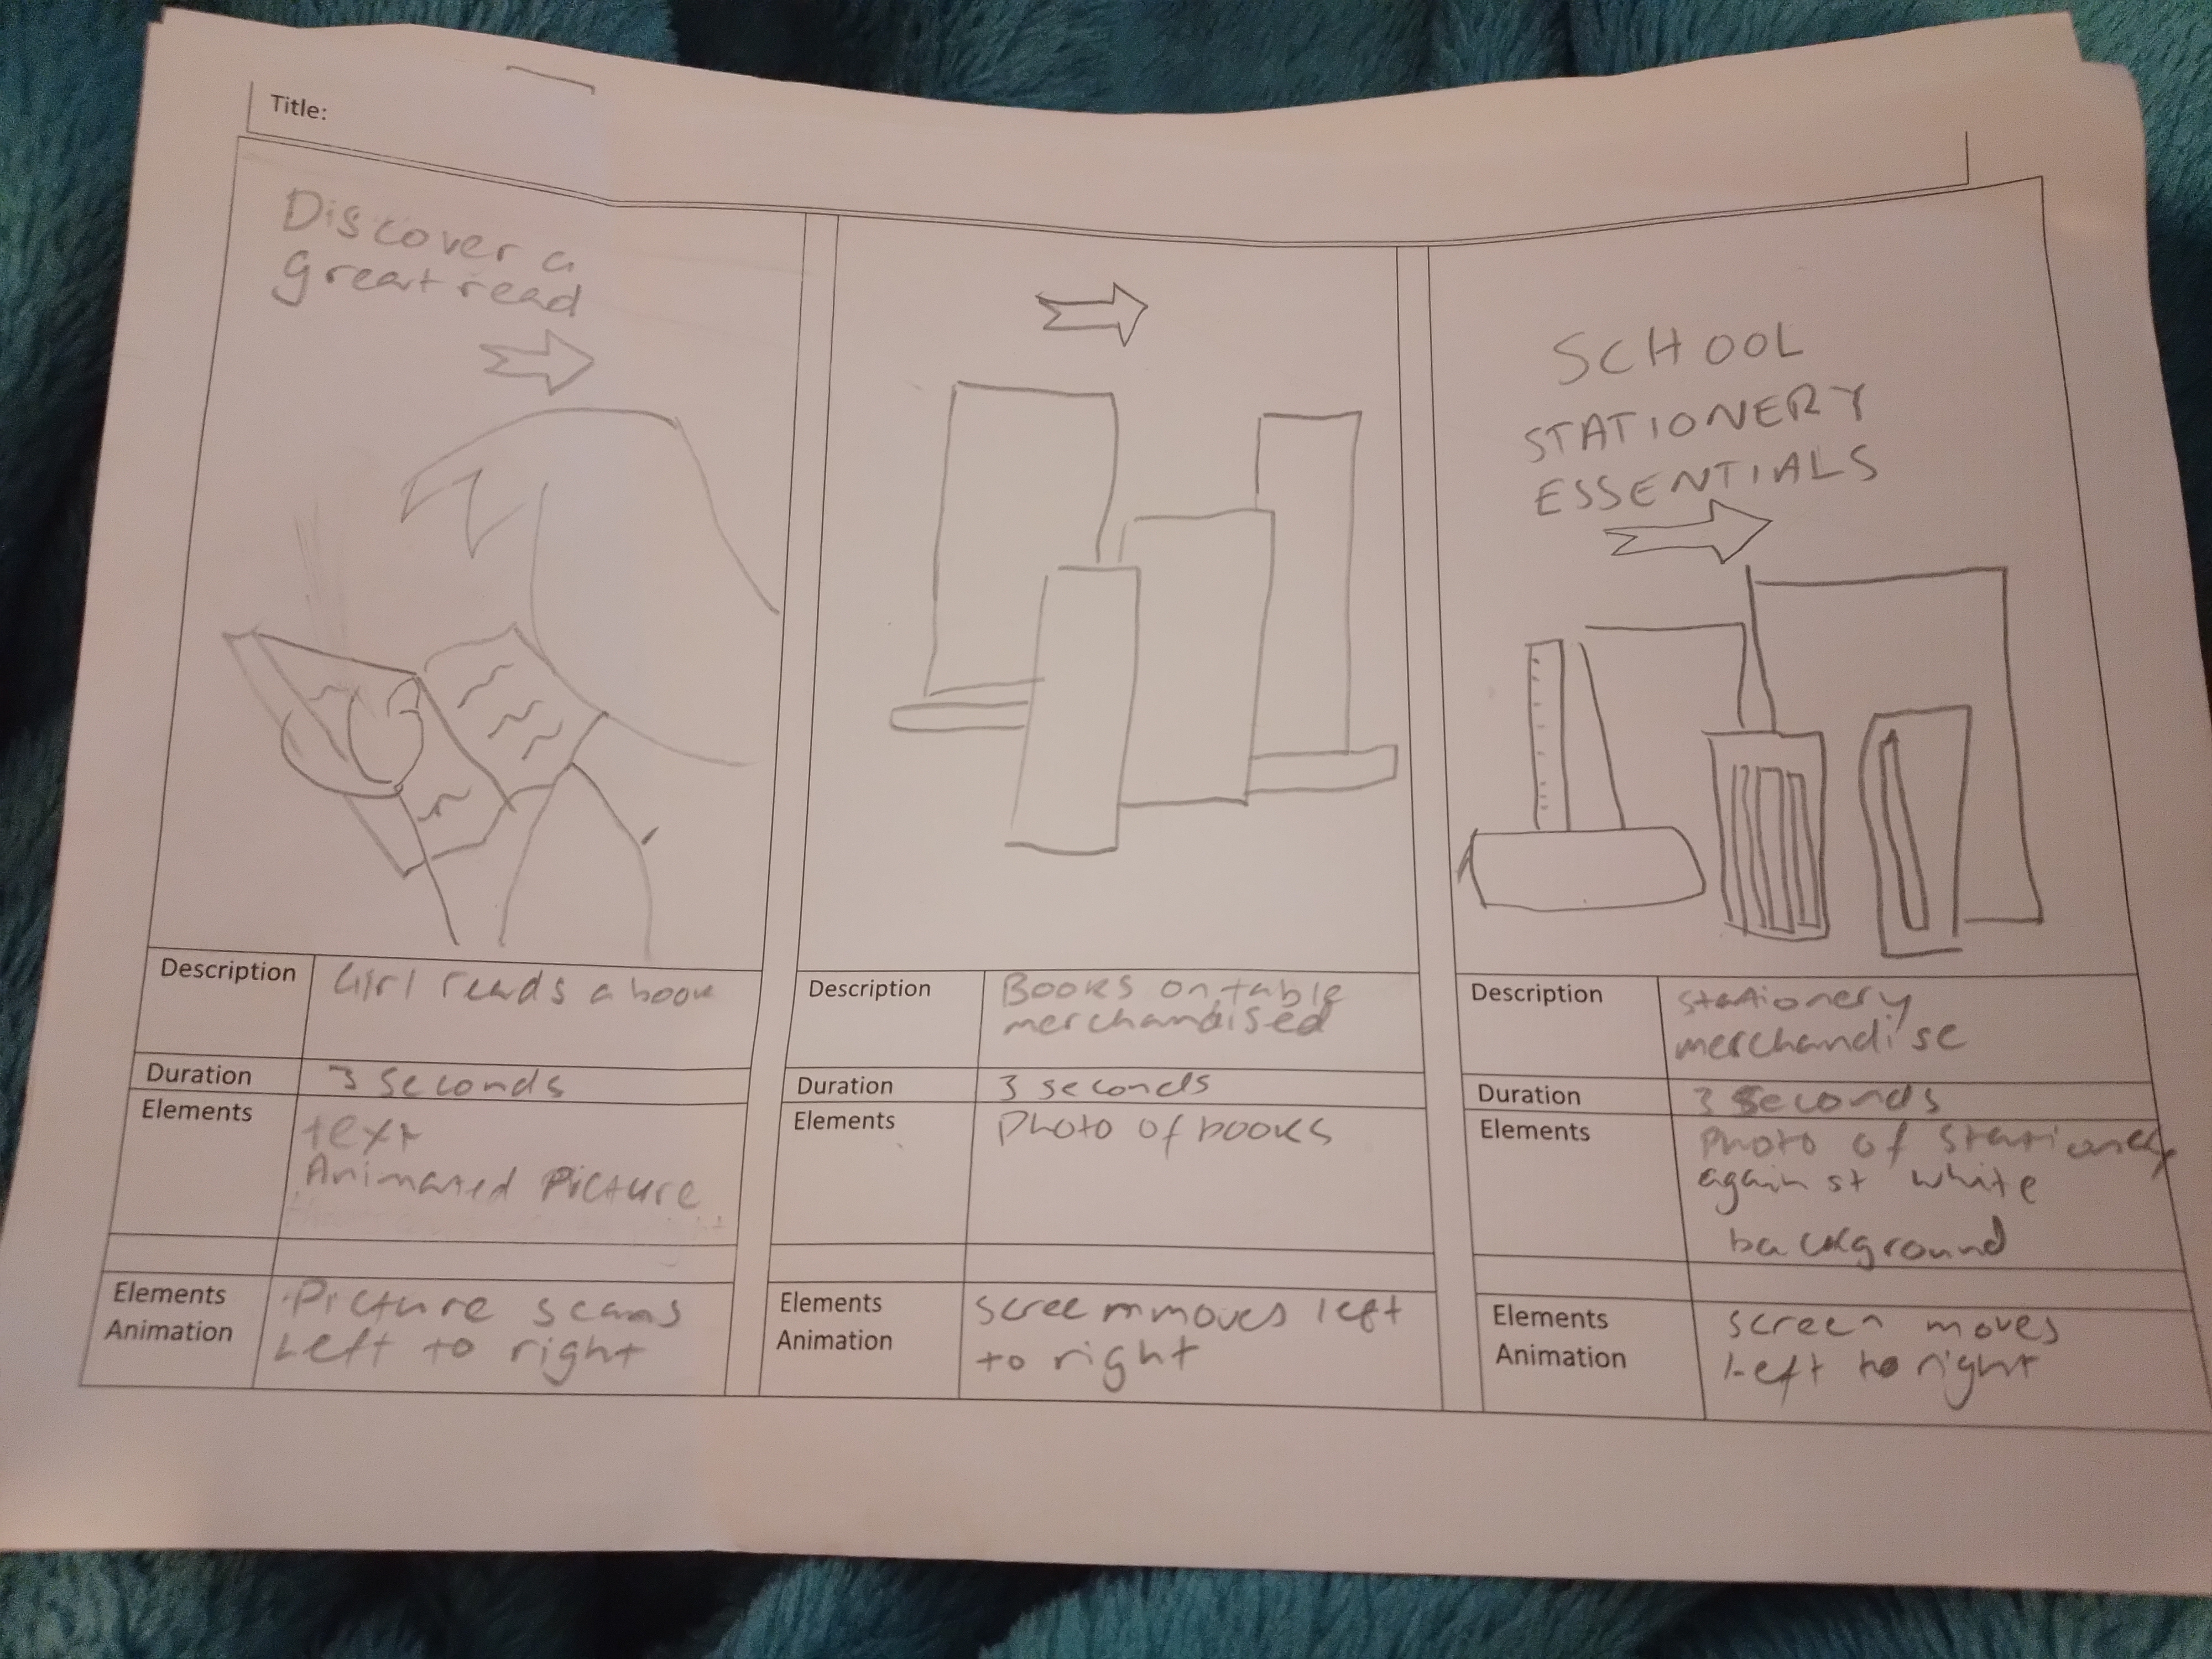 Title:
Discover a
great read
Description
Girl reads a book
Duration
3 seconds
Elements
text
Animated Picture
Elements
Animation
Picture scans
Left to right
Description
Books on table
merchandised
Duration
3 seconds
Elements
Photo of books
Elements
Animation
screen moves left
to right
SCHOOL
STATIONERY
ESSENTIALS
Description
stationery
merchandise
Duration
3 seconds
Elements
Photo of stationery
against white
background
Elements
Animation
screen moves
Left to right